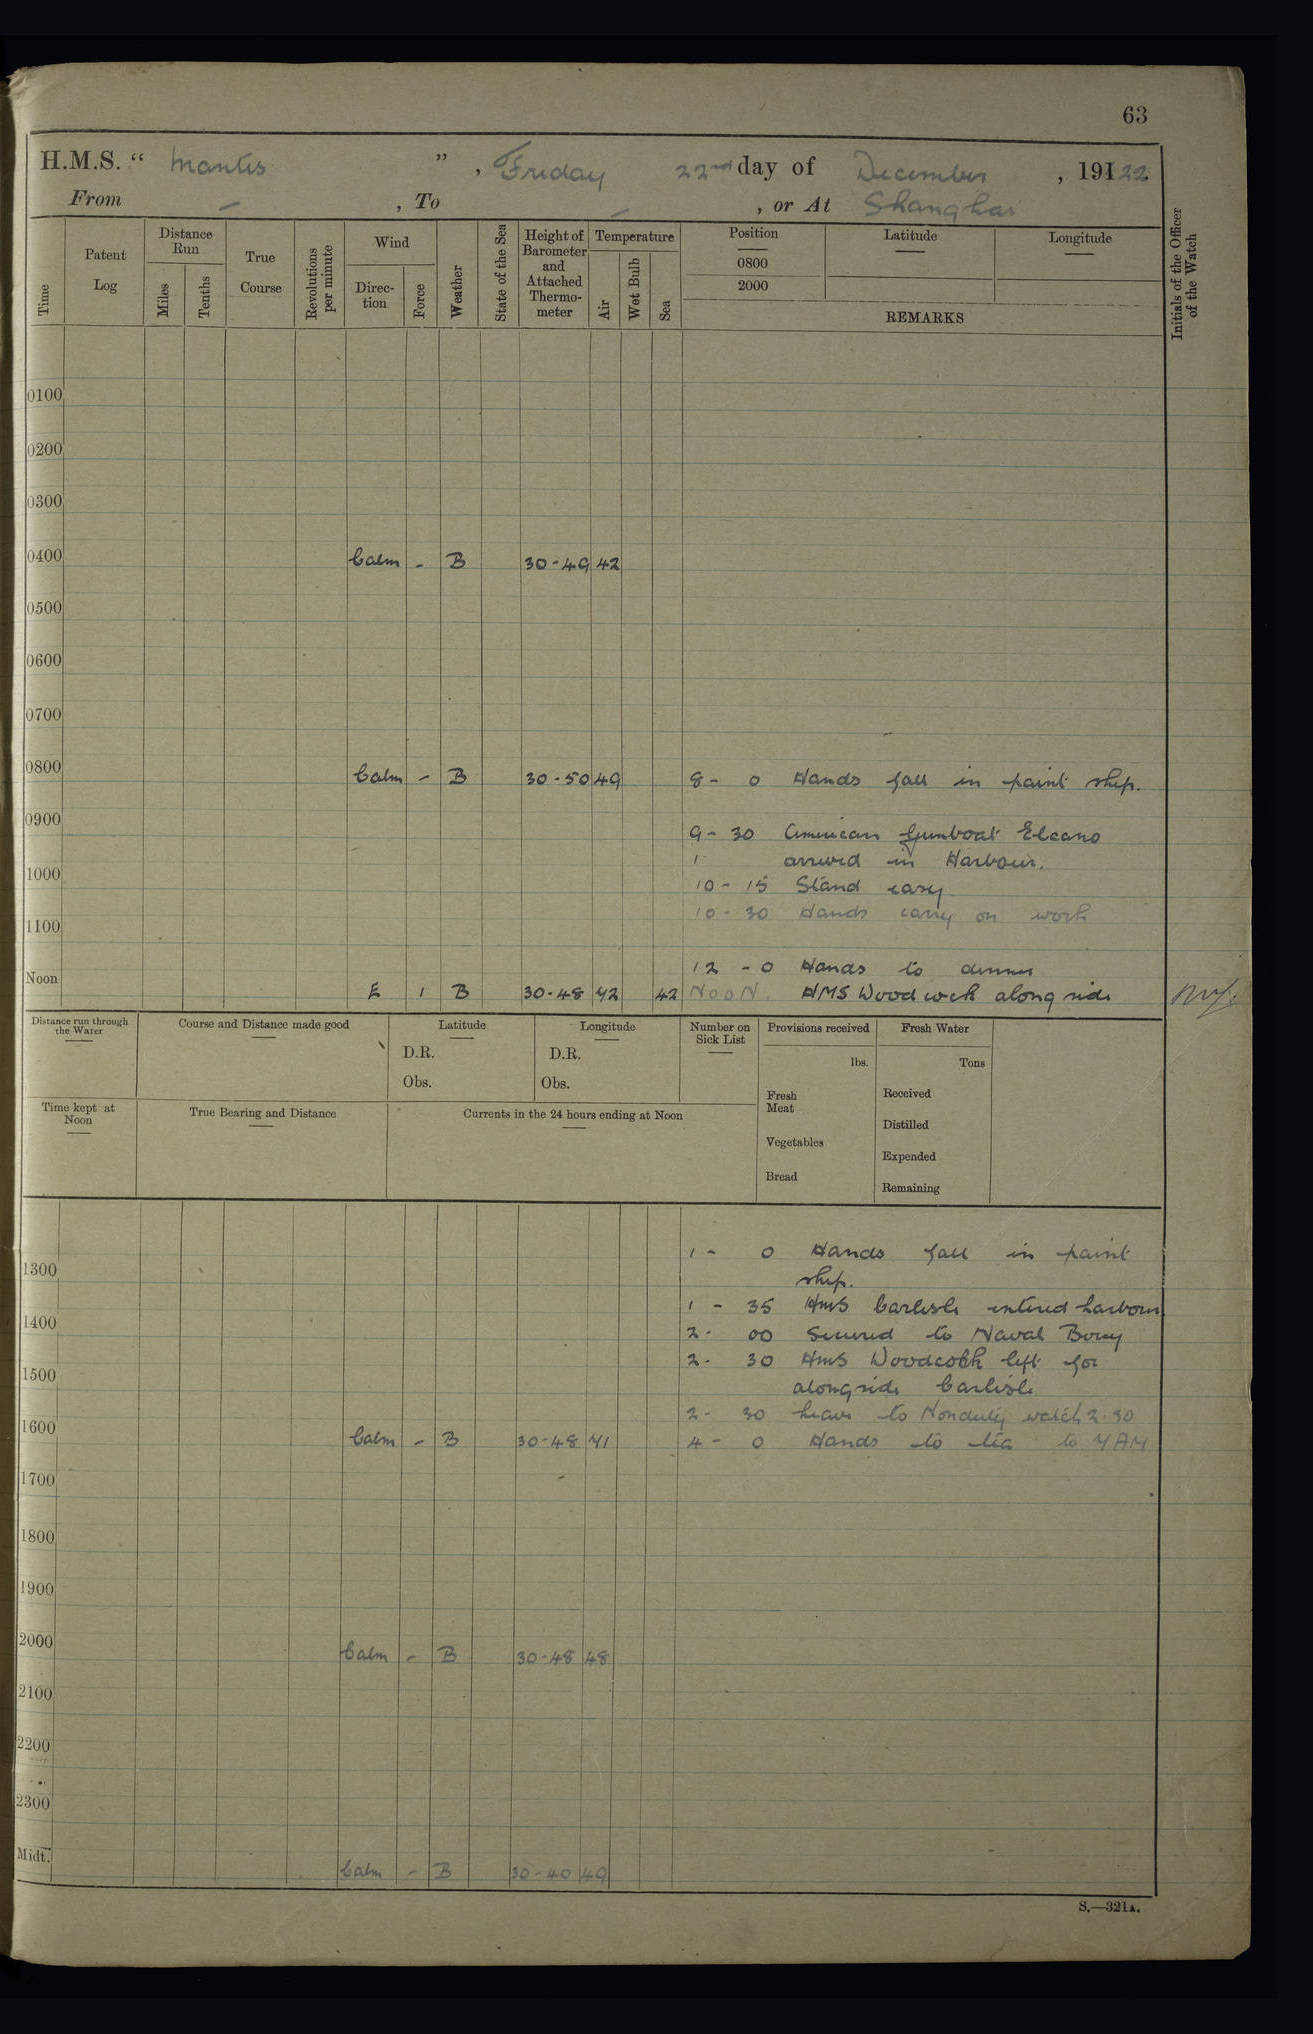 63
H.M.S. “ Mantis ” , Friday 22nd day of December , 19122.
From – , To – , or At Shanghai
Time
Patent Log
Distance Run
Miles
Tenths
True Course
Revolutions per minute
Wind
Direc-tion
Force
Weather
State of the Sea
Height of Barometer and Attached Thermo-meter
Temperature
Air
Wet Bulb
Sea
Position
0800
2000
Latitude
Longitude
REMARKS
Initials of the Officer of the Watch
0100
0200
0300
0400 Calm - B 30-49 42
0500
0600
0700
0800 Calm - B 30-50 49 8- 0 Hands fall in paint ship.
0900
9- 30 American Gunboat Elcano
arrived in Harbour.
1000
10- 15 Stand easy
10- 30 Hands carry on work
1100
12 - 0 Hands to dinner
Noon E 1 B 30-48 42 42 NOON. HMS Woodcock alongside
Distance run through the Water
Course and Distance made good
Latitude
D.R.
Obs.
Longitude
D.R.
Obs.
Number on Sick List
Provisions received
lbs.
Fresh Meat
Vegetables
Bread
Fresh Water
Tons
Received
Distilled
Expended
Remaining
Time kept at Noon
True Bearing and Distance
Currents in the 24 hours ending at Noon
1- 0 Hands fall in paint
1300
ship.
1 - 35 HMS Carlisle entered harbour
1400
2- 00 Secured to Naval Buoy
2- 30 HMS Woodcock left for
1500
alongside Carlisle
2- 30 leave to Nonduty watch 2.30
1600 Calm - B 30-48 41 4- 0 Hands to tea to 7 AM
1700
1800
1900
2000 Calm - B 30-48 48
2100
2200
2300
Midt. Calm - B 30-40 49
S.—321A.